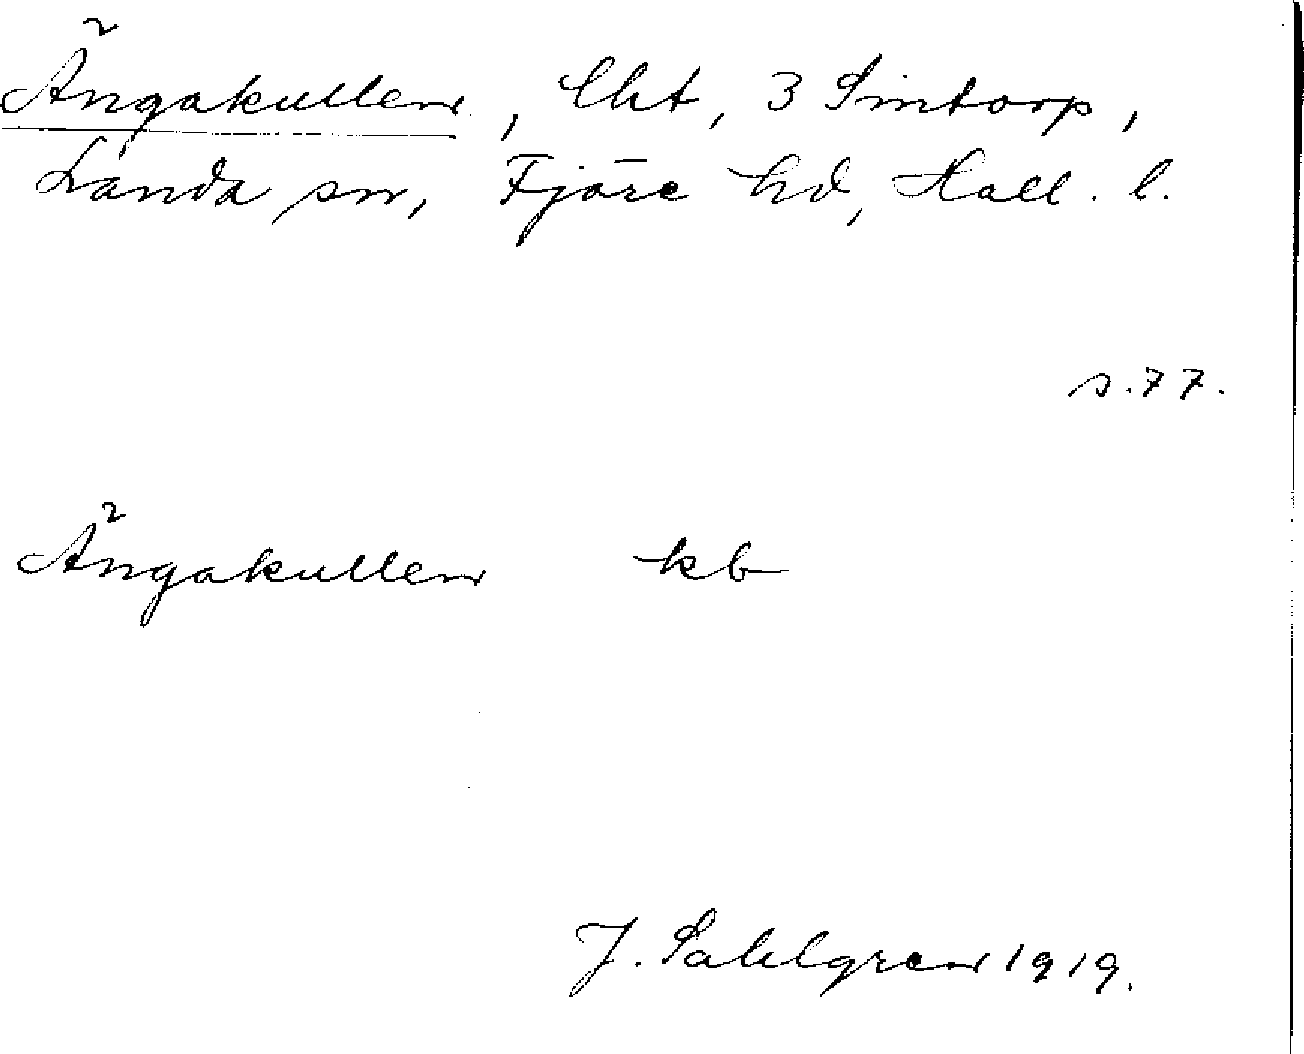 Ängakullen, lht, 3 Sintorp,
Landa sn, Fjäre hd, Hall. l.
s. 77.
Ängakullen kb
J. Sahlgren 1919.